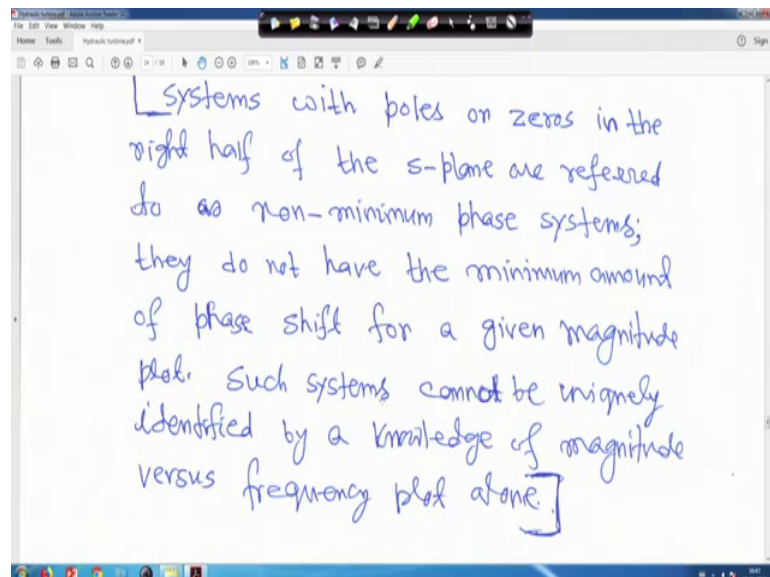 Hydraulic turbine.pdf - Adobe Acrobat Reader DC
File Edit View Window Help
Home Tools Hydraulic turbine.pdf × Sign
systems with poles or zeros in the
right half of the s-plane are referred
to as non-minimum phase systems;
they do not have the minimum amound
of phase shift for a given magnitude
plot. Such systems cannot be uniquely
identified by a knowledge of magnitude
versus frequency plot alone.